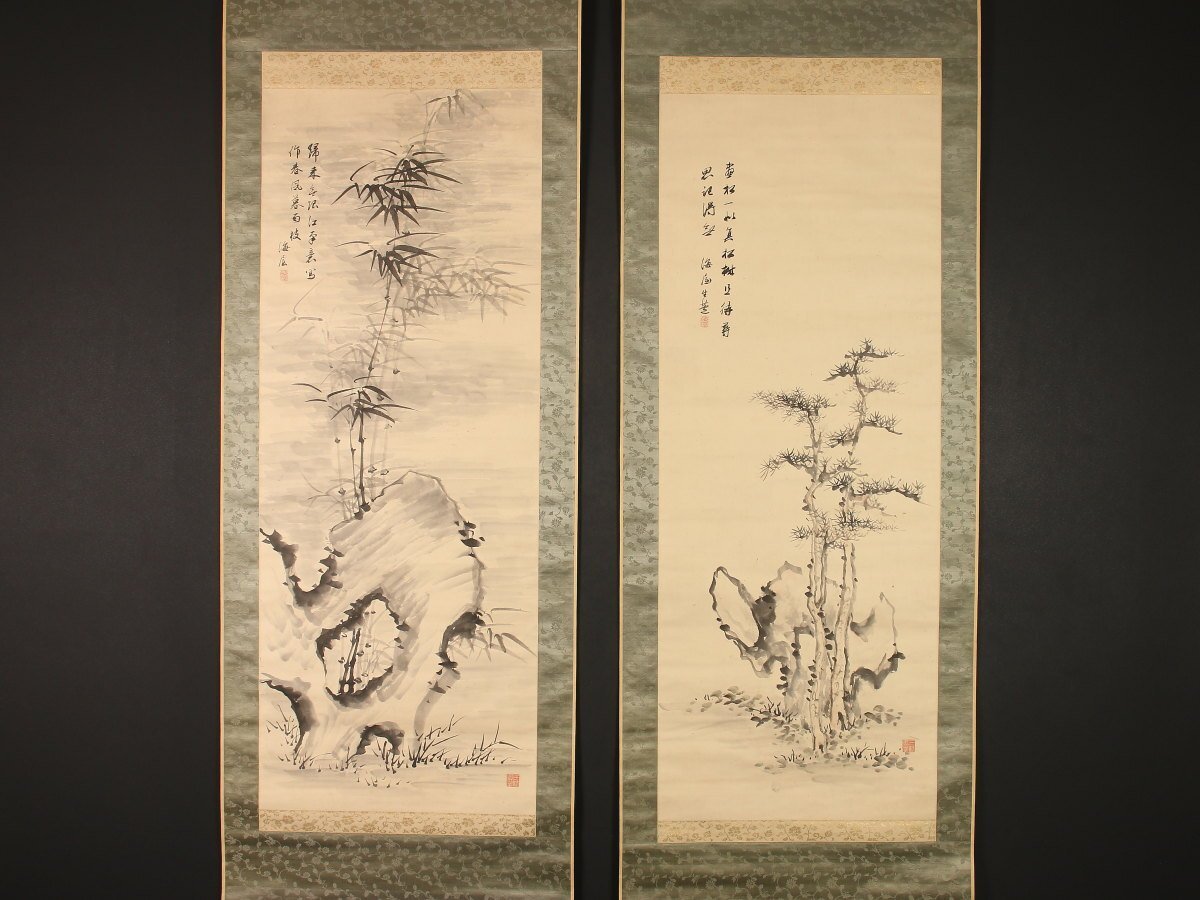 畫松一似真松樹且待尋
思記得無 海屋生題
歸来無限江南意寫
作春風暮雨枝 海屋